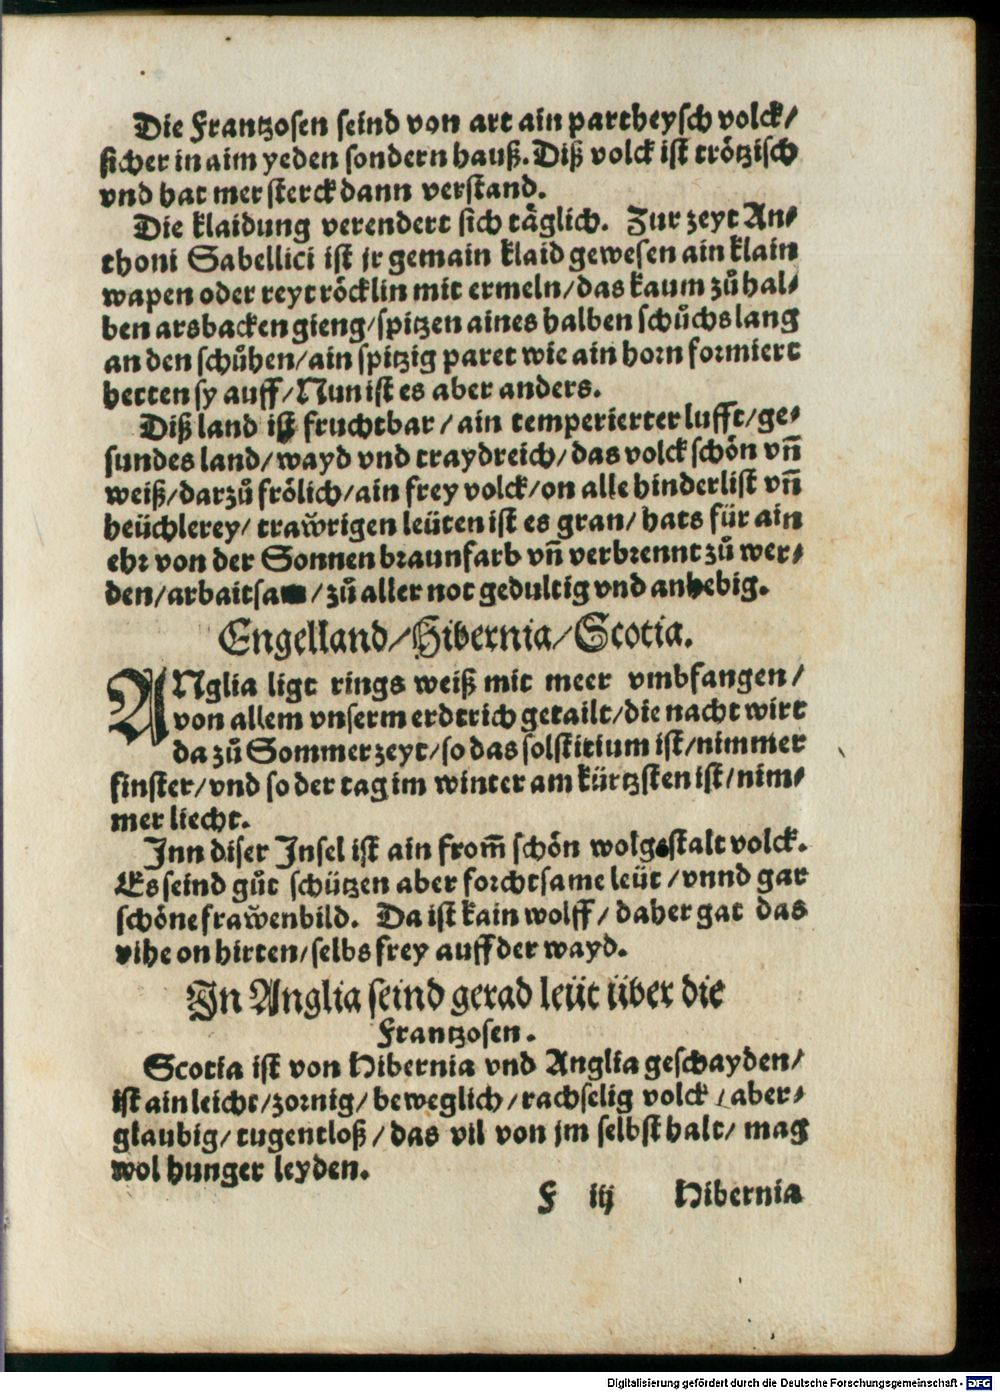 Die Frantzosen seind von art ain partheysch volck/
sicher in aim yeden sondern hauß. Diß volck ist trötzisch
vnd hat mer sterck dann verstand.
Die klaidung verendert sich täglich. Zur zeyt An⸗
thoni Sabellici ist jr gemain klaid gewesen ain klain
wapen oder reytröcklin mit ermeln/das kaum zů hal⸗
ben arsbacken gieng/spitzen aines halben schůchs lang
an den schůhen/ain spitzig paret wie ain horn formiert
hetten sy auff/Nun ist es aber anders.
Diß land ist fruchtbar/ain temperierter lufft/ge⸗
sundes land/wayd vnd traydreich/das volck schön vñ
weiß/darzů frölich/ain frey volck/on alle hinderlist vñ
heüchlerey/traw̆rigen leüten ist es gran/hats für ain
ehr von der Sonnen braunfarb vñ verbrennt zů wer⸗
den/arbaitsam/zů aller not gedultig vnd anhebig.
Engelland/Hibernia/Scotia.
ANglia ligt rings weiß mit meer vmbfangen/
von allem vnserm erdtrich getailt/die nacht wirt
da zů Sommerzeyt/so das solstitium ist/nimmer
finster/vnd so der tag im winter am kürtzsten ist/nim⸗
mer liecht.
Inn diser Insel ist ain from̃ schön wolgestalt volck.
Es seind gůt schützen aber forchtsame leüt/vnnd gar
schöne fraw̆enbild. Da ist kain wolff/daher gat das
vihe on hirten/selbs frey auff der wayd.
In Anglia seind gerad leüt über die
Frantzosen.
Scotia ist von Hibernia vnd Anglia geschayden/
ist ain leicht/zornig/beweglich/rachselig volck/aber⸗
glaubig/tugentloß/das vil von jm selbst halt/mag
wol hunger leyden.
F iij Hibernia
Digitalisierung gefördert durch die Deutsche Forschungsgemeinschaft - DFG